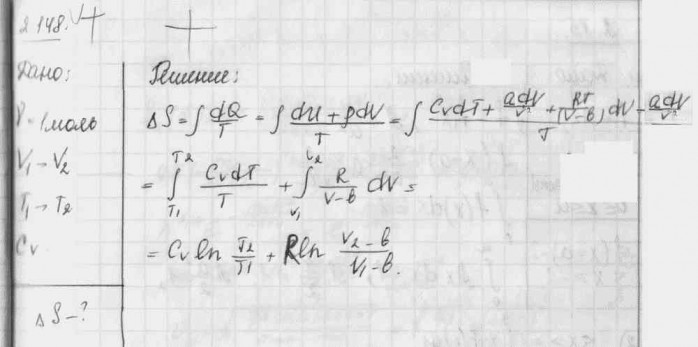 2.148.
Дано:
ν = 1 моль
V₁ → V₂
T₁ → T₂
Cv
ΔS - ?
Решение:
ΔS = ∫ dQ/T = ∫ (dU + pdV)/T = ∫ (CvdT + adV/V² + (RT/(V-b)) dV - adV/V²)/T
= ∫_{T₁}^{T₂} CvdT/T + ∫_{V₁}^{V₂} R/(V-b) dV =
= Cv ln T₂/T₁ + R ln (V₂-b)/(V₁-b).